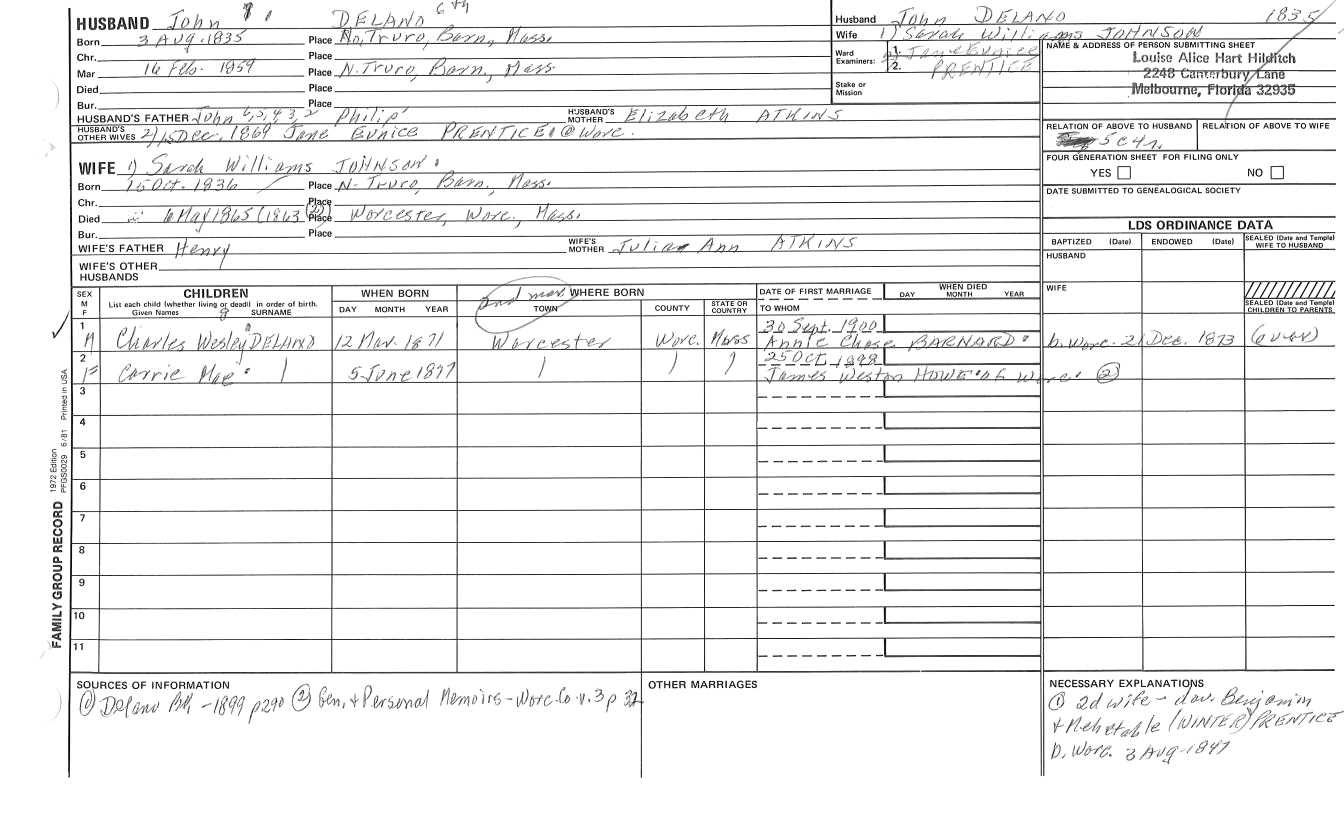 HUSBAND John DELANO 6th
Born 3 Aug. 1835 Place No, Truro, Barn, Mass.
Chr. Place
Mar 16 Feb- 1859 Place N. Truro, Barn, Mass
Died Place
Bur. Place
HUSBAND'S FATHER John 6,5,4,3,2 Philip' HUSBAND'S MOTHER Elizabeth ATKINS
HUSBAND'S OTHER WIVES 2/15 Dec. 1869 Jane Eunice PRENTICE @ Worc.
Husband John DELANO 1835
Wife 1) Sarah Williams JOHNSON
Ward Examiners: 1. Jane Eunice
2. PRENTICE
Stake or Mission
NAME & ADDRESS OF PERSON SUBMITTING SHEET
Louise Alice Hart Hilditch
2248 Canterbury Lane
Melbourne, Florida 32935
RELATION OF ABOVE TO HUSBAND RELATION OF ABOVE TO WIFE
5c4r.
FOUR GENERATION SHEET FOR FILING ONLY
YES NO
DATE SUBMITTED TO GENEALOGICAL SOCIETY
WIFE 1) Sarah Williams JOHNSON
Born 15 Oct. 1836 Place N- Truro, Barn, Mass.
Chr. Place
Died 6 May 1865 (1863 (2)) Place Worcester, Worc., Mass.
Bur. Place
WIFE'S FATHER Henry WIFE'S MOTHER Julia Ann ATKINS
WIFE'S OTHER HUSBANDS
LDS ORDINANCE DATA
BAPTIZED (Date) ENDOWED (Date) SEALED (Date and Temple) WIFE TO HUSBAND
HUSBAND
WIFE
SEALED (Date and Temple) CHILDREN TO PARENTS
SEX M F CHILDREN WHEN BORN and mar WHERE BORN DATE OF FIRST MARRIAGE WHEN DIED
List each child (whether living or dead) in order of birth.
Given Names SURNAME DAY MONTH YEAR TOWN COUNTY STATE OR COUNTRY TO WHOM DAY MONTH YEAR
1 30 Sept. 1900
M Charles Wesley DELANO 12 Mar 1871 Worcester Worc. Mass Annie Chase BARNARD b. Worc. 21 Dec. 1873
2 25 Oct. 1898
F Carrie Mae 5 June 1877 James Weston HOWE of Worc. (2)
3
4
5
6
7
8
9
10
11
FAMILY GROUP RECORD 1972 Edition PFGS0029 6/81 Printed in USA
SOURCES OF INFORMATION
(1) Delano Bk -1899 p290 (2) Gen. & Personal Memoirs - Worc. Co v. 3 p 32
OTHER MARRIAGES
NECESSARY EXPLANATIONS
(1) 2d wife - dau. Benjamin
& Mehetable (WINTER) PRENTICE
b. Worc. 3 Aug-1847